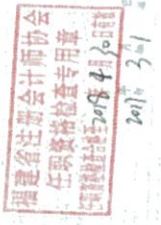 福建省注册会计师协会
任职资格检查专用章
2018年4月30日有效
2017年3月